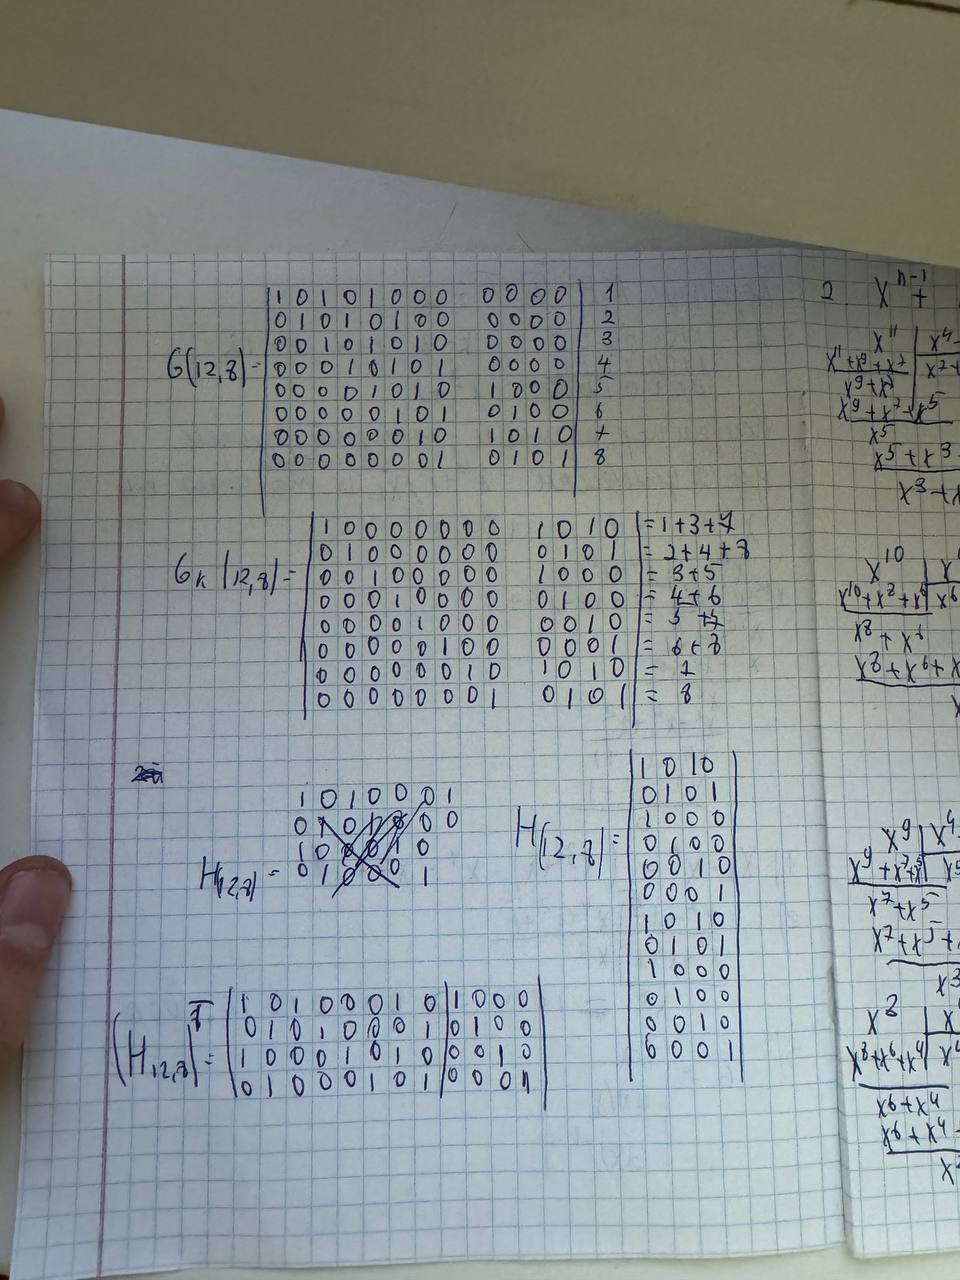 G(12,8)=
1 0 1 0 1 0 0 0 0 0 0 0 1
0 1 0 1 0 1 0 0 0 0 0 0 2
0 0 1 0 1 0 1 0 0 0 0 0 3
0 0 0 1 0 1 0 1 0 0 0 0 4
0 0 0 0 1 0 1 0 1 0 0 0 5
0 0 0 0 0 1 0 1 0 1 0 0 6
0 0 0 0 0 0 1 0 1 0 1 0 7
0 0 0 0 0 0 0 1 0 1 0 1 8
Gк(12,8)=
1 0 0 0 0 0 0 0 1 0 1 0 = 1+3+7
0 1 0 0 0 0 0 0 0 1 0 1 = 2+4+8
0 0 1 0 0 0 0 0 1 0 0 0 = 3+5
0 0 0 1 0 0 0 0 0 1 0 0 = 4+6
0 0 0 0 1 0 0 0 0 0 1 0 = 5+7
0 0 0 0 0 1 0 0 0 0 0 1 = 6+8
0 0 0 0 0 0 1 0 1 0 1 0 = 7
0 0 0 0 0 0 0 1 0 1 0 1 = 8
H(12,8)=
1 0 1 0 0 0 1
1 0 0 0 1 0
0 1 0 0 0 1
H(12,8)=
1 0 1 0
0 1 0 1
1 0 0 0
0 1 0 0
0 0 1 0
0 0 0 1
1 0 1 0
0 1 0 1
1 0 0 0
0 1 0 0
0 0 1 0
0 0 0 1
(H12,8)ᵀ=
1 0 1 0 0 0 1 0 1 0 0 0
0 1 0 1 0 0 0 1 0 1 0 0
1 0 0 0 1 0 1 0 0 0 1 0
0 1 0 0 0 1 0 1 0 0 0 1
2 xⁿ⁻¹ +
x¹¹ x⁴
x¹¹+x⁹+x⁷ x⁷+
x⁹+x⁷
x⁹+x⁷+x⁵
x⁵
x⁵+x³
x³+x
x¹⁰ x
x¹⁰+x⁸+x⁶ x⁶
x⁸+x⁶
x⁸+x⁶+x
x
x⁹ x⁴
x⁹+x⁷+x⁵ x⁵
x⁷+x⁵
x⁷+x⁵+
x³
x⁸ x
x⁸+x⁶+x⁴ x⁴
x⁶+x⁴
x⁶+x⁴
x²